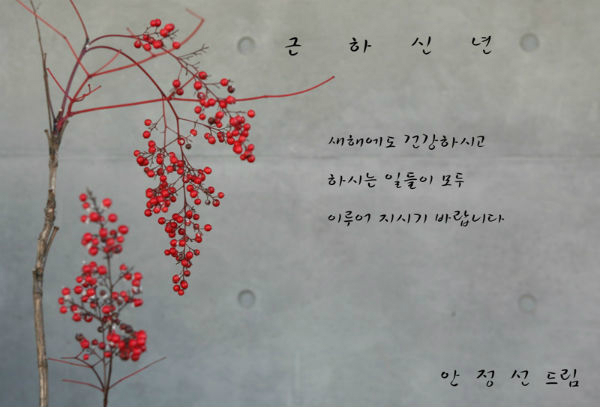 근 하 신 년
새해에도 건강하시고
하시는 일들이 모두
이루어 지시기 바랍니다
안 정 선 드림